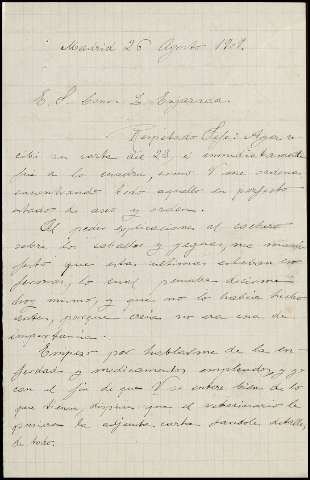 Madrid 26 Agosto 1908.
E. S. Conde L
Respetado Sefe: Ayer re
cibi su carta del 23, e inmediatamente
fui a la cuadra, como V me ordena
encontrando todo aquello en perfecto
estado de aseo y orden.
Al pedir esplicaciones al cochero
sobre los caballos y yeguas, me mani
festo que estas ultimas estaban en
fermas, lo cual pensaba decirme
hoy mismo, y que no lo habia hecho
antes, porque creia no era cosa de
importancia.
Empezo por hablarme de la en
fermedad y medicamentos empleados, y yo
con el fin de que V se entere bien de lo
que tienen, dispuse que el veterinario le
pusiera la adjunta carta dandole detalles,
de todo.